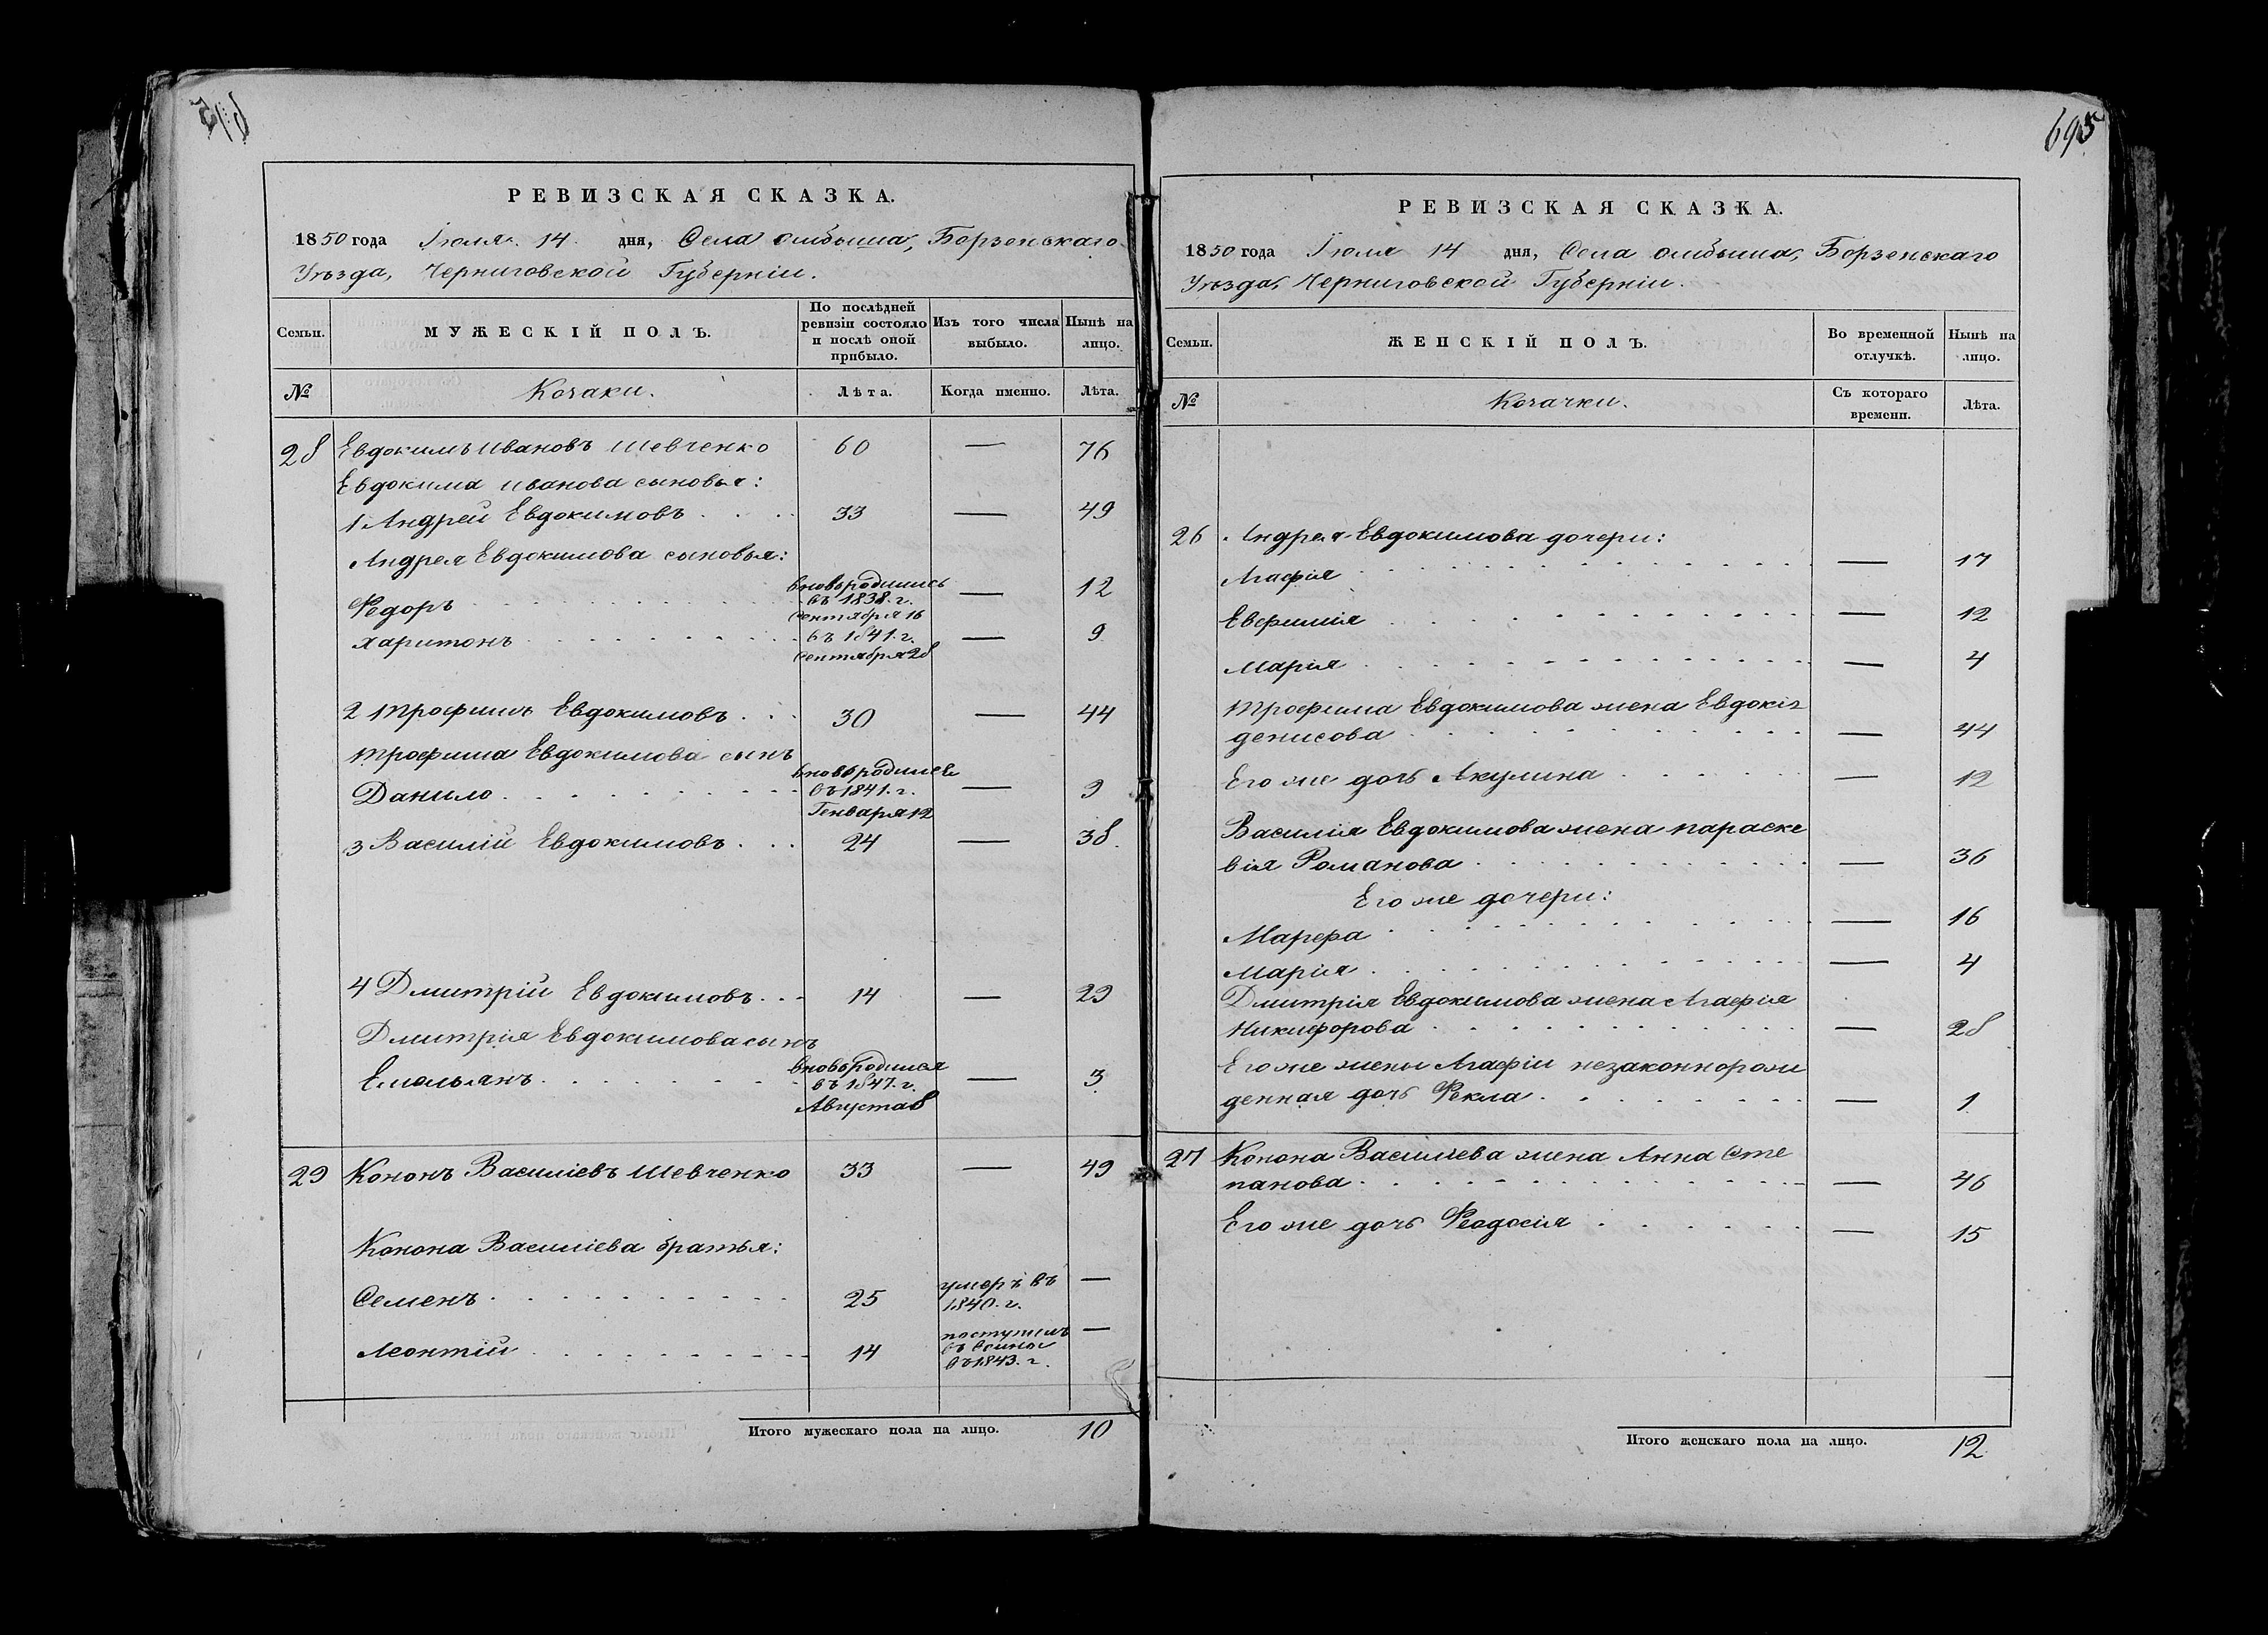 695
РЕВИЗСКАЯ СКАЗКА.
1850 года Іюля 14 дня, Села Омбыша, Борзенскаго
Уѣзда, Черниговской Губерніи.
Семьи.
МУЖЕСКІЙ ПОЛЪ.
По послѣдней ревизіи состояло и послѣ оной прибыло.
Изъ того числа выбыло.
Нынѣ на лицо.
№
Козаки.
Лѣта.
Когда именно.
Лѣта.
28 Евдокимъ Ивановъ Шевченко 60 — 76
Евдокима Иванова сыновья:
1 Андрей Евдокимовъ 33 — 49
Андрея Евдокимова сыновья:
Федоръ вновьродились въ 1838. г. Сентября 16 — 12
Харитонъ въ 1841. г. Сентября 28 — 9
2 Трофимъ Евдокимовъ 30 — 44
Трофима Евдокимова сынъ
Данило вновьродился въ 1841. г. Генваря 12 — 9
3 Василій Евдокимовъ 24 — 38.
4 Дмитрій Евдокимовъ 14 — 29
Дмитрія Евдокимова сынъ
Емельянъ вновьродился въ 1847. г. Августа 8 — 3
29 Кононъ Василіевъ Шевченко 33 — 49
Конона Василіева братья:
Семенъ 25 умеръ въ 1840. г. —
Леонтій 14 поступилъ въ 1843. г. —
Итого мужескаго пола на лицо. 10
695
РЕВИЗСКАЯ СКАЗКА.
1850 года Іюля 14 дня, Села Омбыша, Борзенскаго
Уѣзда, Черниговской Губерніи.
Семьи.
ЖЕНСКІЙ ПОЛЪ.
Во временной отлучкѣ.
Нынѣ на лицо.
№
Козачки.
Съ котораго времени.
Лѣта.
26 Андрея Евдокимова дочери:
Агафія — 17
Евфимія — 12
Марія — 4
Трофима Евдокимова жена Евдокія
Денисова — 44
Его же дочь Акулина — 12
Василія Евдокимова жена Параске
вія Романова — 36
Его же дочери:
Марфа — 16
Марія — 4
Дмитрія Евдокимова жена Агафія
Никифорова — 28
Его же жены Агафіи незаконнорож
денная дочь Фекла — 1
27 Конона Василіева жена Анна Сте
панова — 46
Его же дочь Феодосія — 15
Итого женскаго пола на лицо. 12